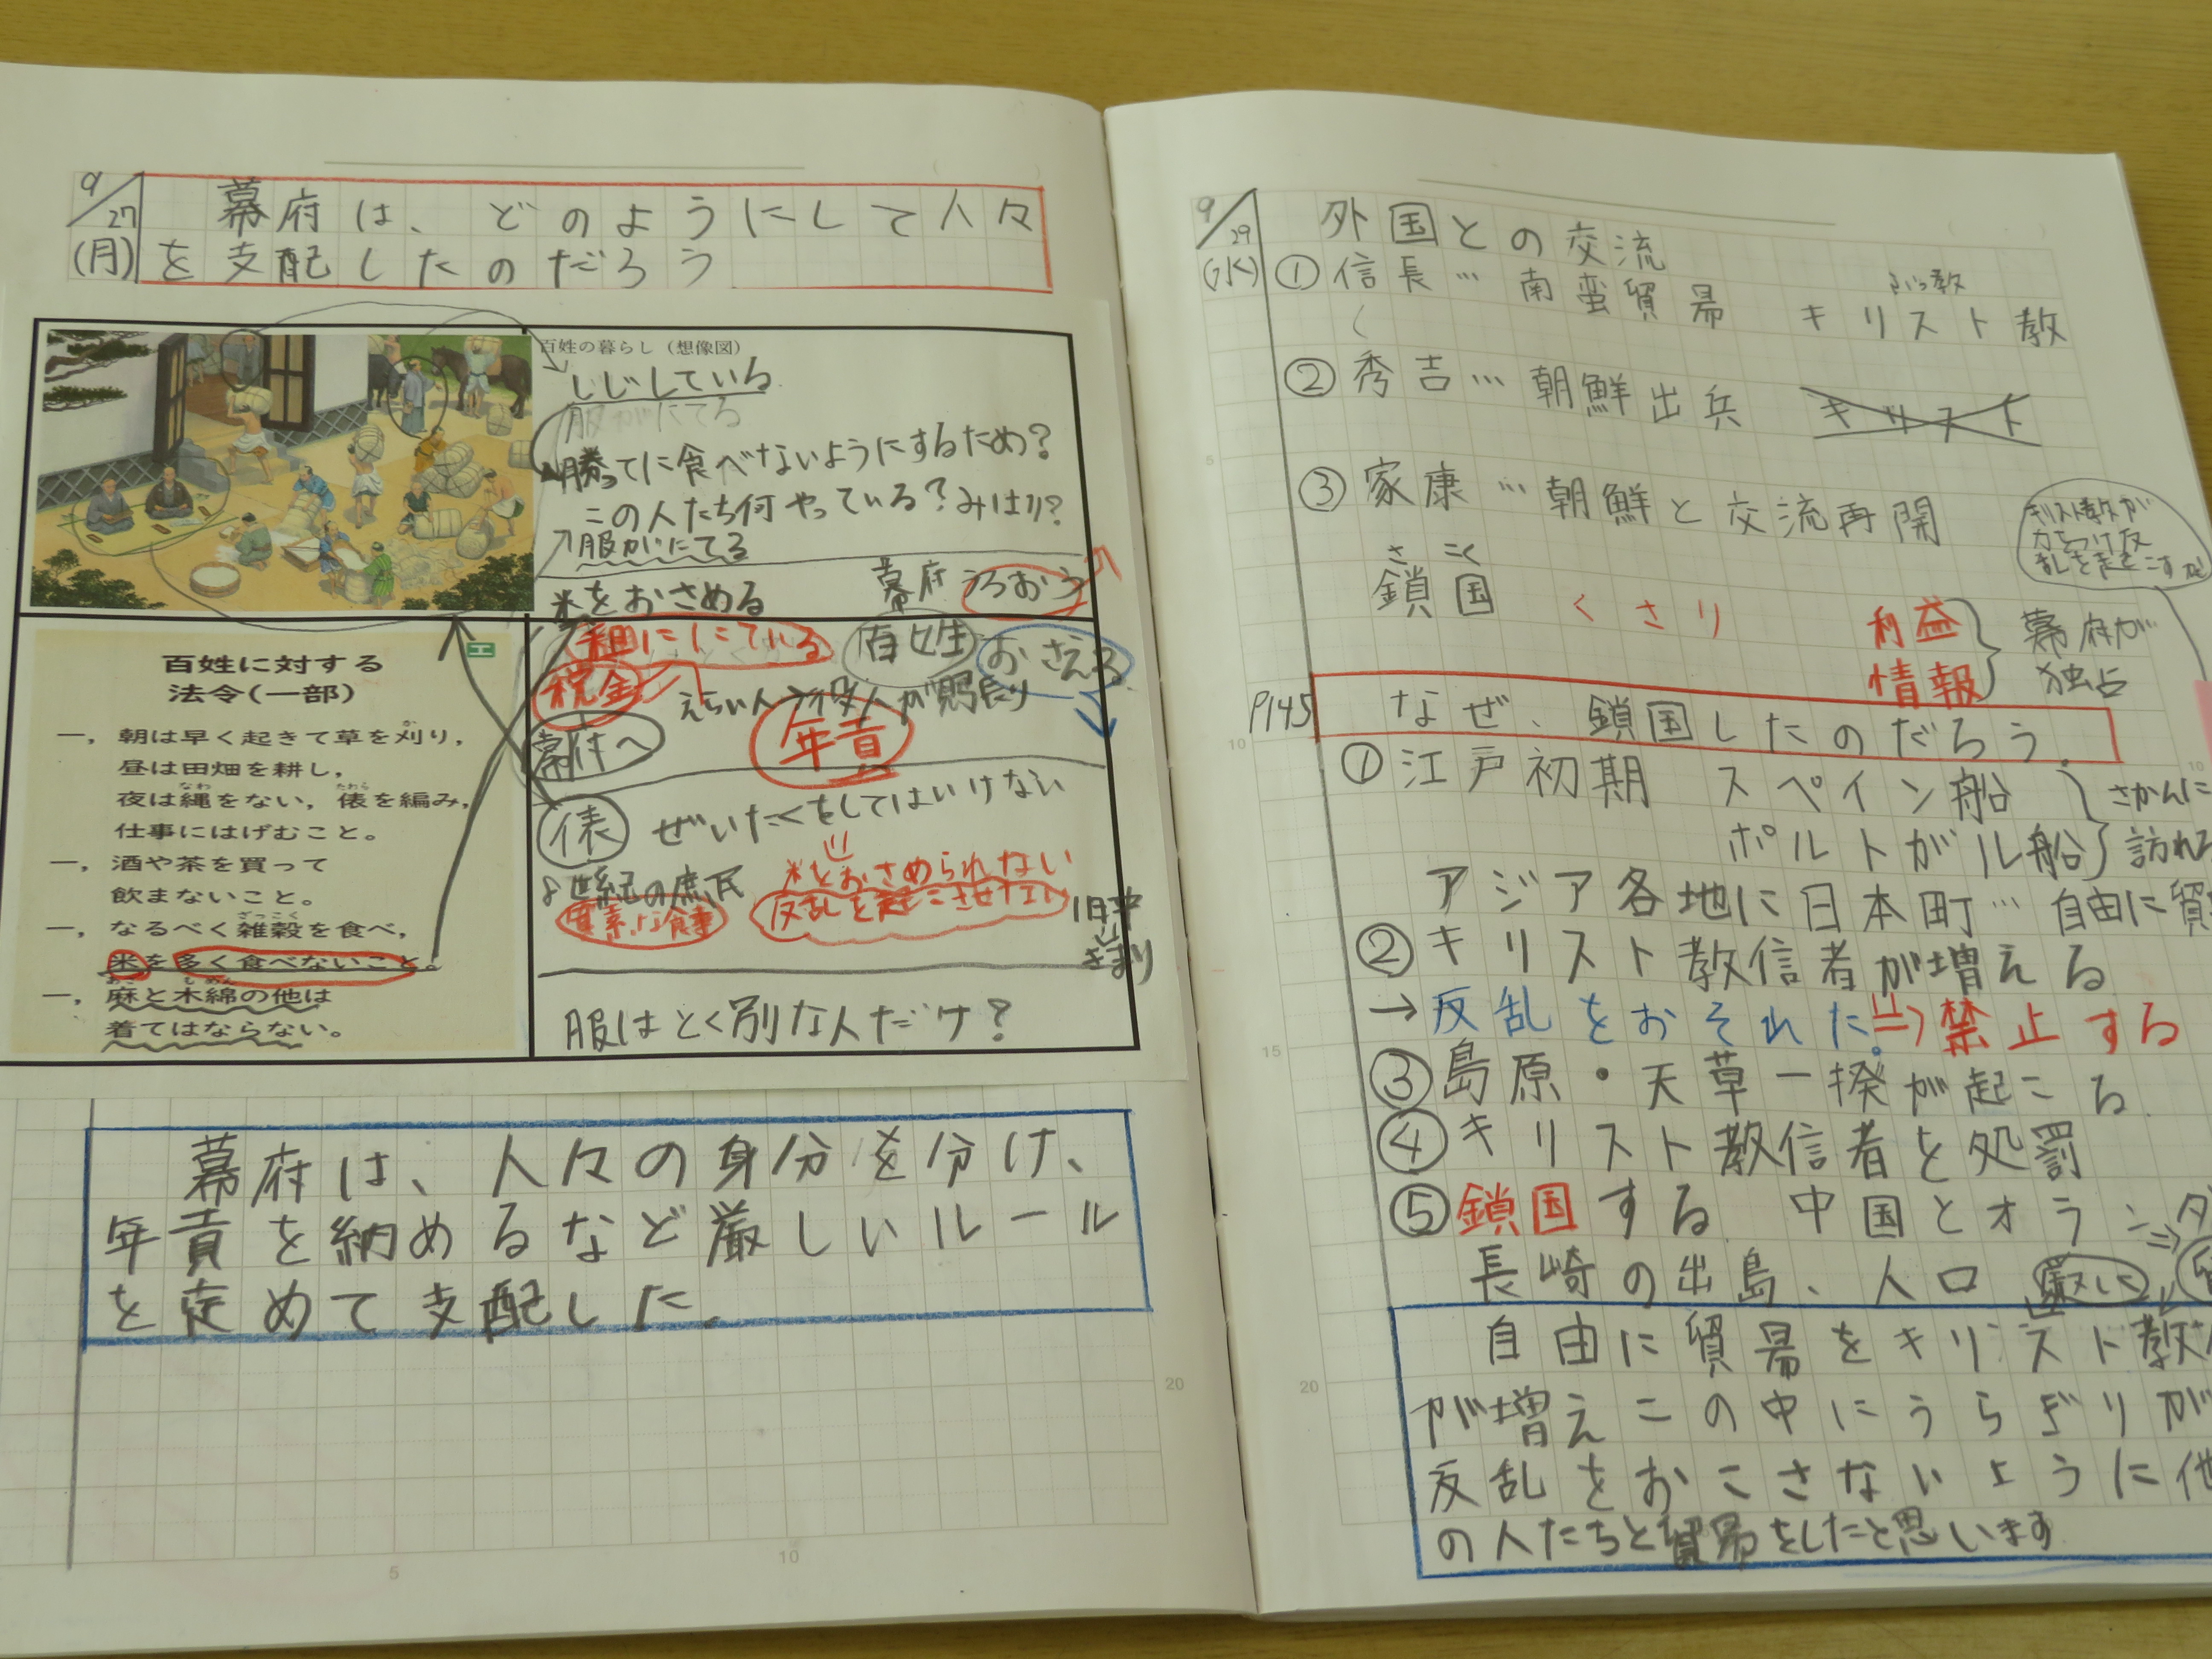 9/27
(月)
幕府は、どのようにして人々
を支配したのだろう
百姓の暮らし(想像図)
しじしている
服がにてる
勝ってに食べないようにするため?
この人たち何やっている?みはり?
服がにてる
米をおさめる
幕府 うるおう
百姓 おさえる
税金
えらい人 役人が見はり
幕府へ
年貢
俵 ぜいたくをしてはいけない
8世紀の庶民
質素な食事
米をおさめられない
反乱を起こさせない
服はとく別な人だけ?
エ
百姓に対する
法令(一部)
一,朝は早く起きて草を刈り,
昼は田畑を耕し,
夜は縄をない,俵を編み,
仕事にはげむこと。
一,酒や茶を買って
飲まないこと。
一,なるべく雑穀を食べ,
米を多く食べないこと。
一,麻と木綿の他は
着てはならない。
幕府は、人々の身分を分け、
年貢を納めるなど厳しいルール
を定めて支配した。
5
10
20
9/29
(水)
外国との交流
①信長…南蛮貿易 キリスト教
ぶっ教
②秀吉…朝鮮出兵 キリスト
③家康…朝鮮と交流再開
キリスト教が
力をつけ反
乱を起こす
さ こく
鎖国 くさり
利益
情報
幕府が
独占
P145
なぜ、鎖国したのだろう。
①江戸初期 スペイン船
ポルトガル船
さかんに
訪れ
アジア各地に日本町…自由に貿
②キリスト教信者が増える
→反乱をおそれた。⇒禁止する
③島原・天草一揆が起こる
④キリスト教信者を処罰
⑤鎖国する 中国とオラン
長崎の出島、人口
自由に貿易をキリスト教
が増えこの中にうらぎりが
反乱をおこさないように他
の人たちと貿易をしたと思います
5
10
15
20